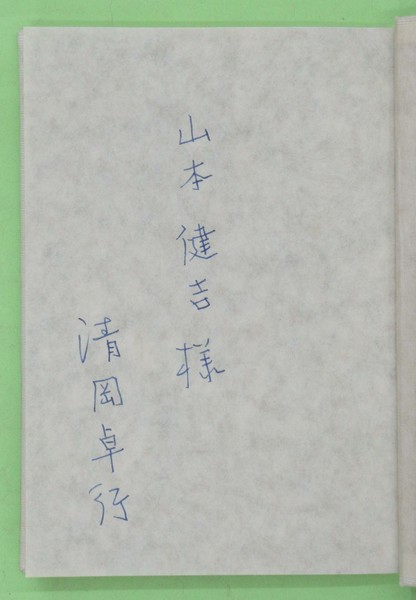 山本健吉様
清岡卓行